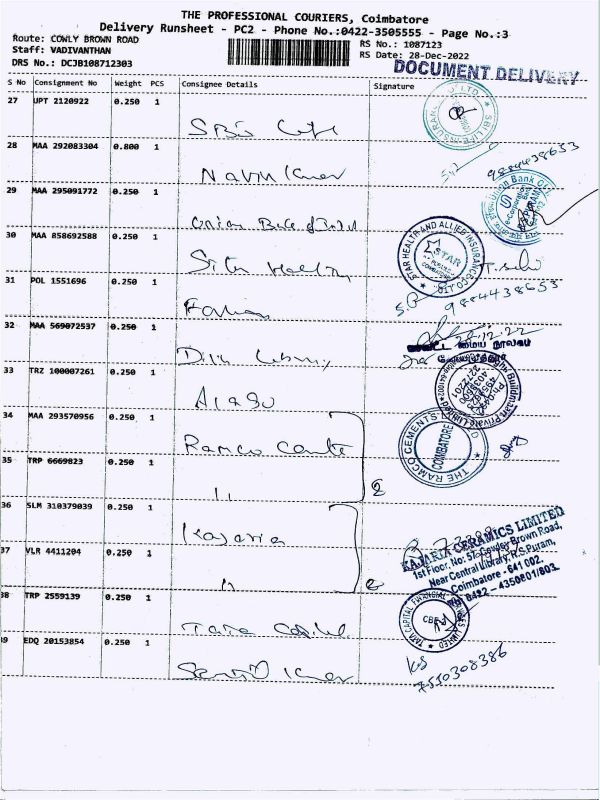 THE PROFESSIONAL COURIERS, Coimbatore
Delivery Runsheet - PC2 - Phone No.:0422-3505555 - Page No.:3
Route: COWLY BROWN ROAD
Staff: VADIVANTHAN
DRS No.: DCJB108712303
RS No.: 1087123
RS Date: 28-Dec-2022
DOCUMENT DELIVERY
S No Consignment No Weight PCS Consignee Details Signature
27 UPT 2120922 0.250 1
SBI Life
28 MAA 292083304 0.800 1
Navin Kumar
9884438653
29 MAA 295091772 0.250 1
Union Bank of
Union Bank Of
30 MAA 858692588 0.250 1
Star Health
STAR HEALTH AND ALLIED INSURANCE CO. LTD.
STAR
COIMBATORE
31 POL 1551696 0.250 1
9884438653
32 MAA 569072537 0.250 1
Library
மைய நூலகம்
33 TRZ 100007261 0.250 1
Private Limited
34 MAA 293570956 0.250 1
Ramco
THE RAMCO CEMENTS
COIMBATORE
35 TRP 6669823 0.250 1
"
36 SLM 310379039 0.250 1
Kajaria
KAJARIA CERAMICS LIMITED
1st Floor, No: 57, Cowley Brown Road,
Near Central Library, R.S.Puram,
Coimbatore - 641 002.
Ph: 0422 - 4350801/803.
37 VLR 4411204 0.250 1
"
38 TRP 2559139 0.250 1
Tata Capital
TATA CAPITAL FINANCIAL SERVICES LIMITED
CBE
39 EDQ 20153854 0.250 1
Kumar
7510308386